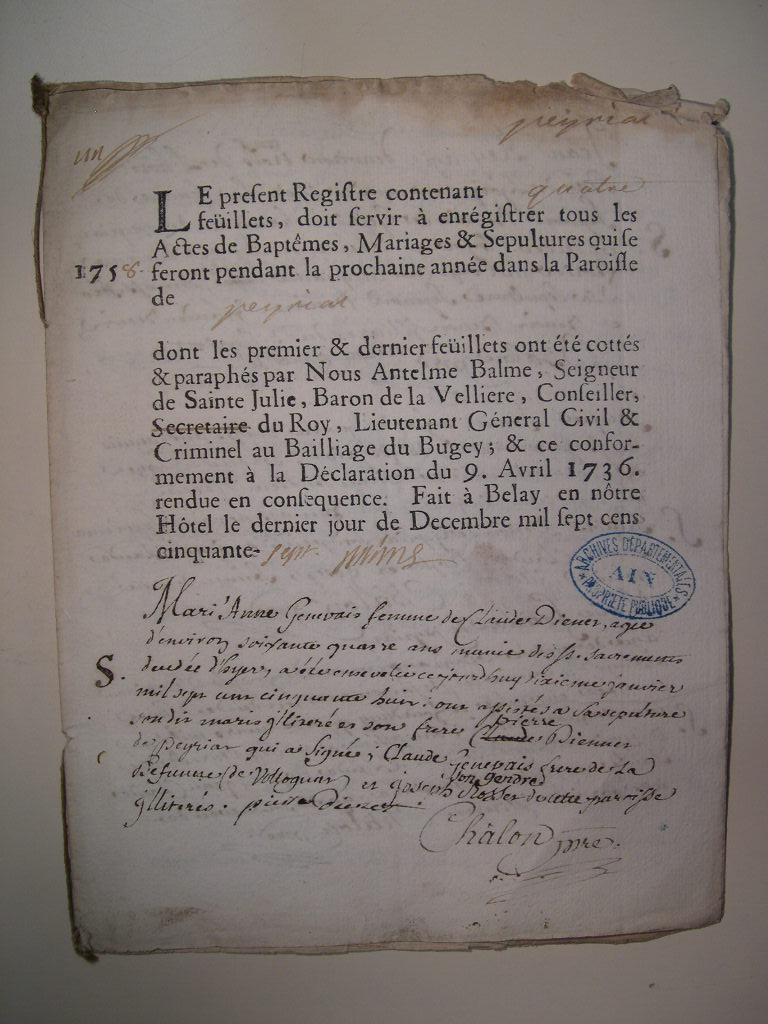 peyriat
un
LE preſent Regiſtre contenant quatre
feüillets, doit ſervir à enrégiſtrer tous les
Actes de Baptêmes, Mariages & Sepultures qui ſe
1758. feront pendant la prochaine année dans la Paroiſſe
de peyriat
dont les premier & dernier feüillets ont été cottés
& paraphés par Nous Antelme Balme, Seigneur
de Sainte Julie, Baron de la Velliere, Conſeiller,
Secretaire du Roy, Lieutenant Géneral Civil &
Criminel au Bailliage du Bugey; & ce confor-
mement à la Déclaration du 9. Avril 1736.
rendue en conſequence. Fait à Belay en nôtre
Hôtel le dernier jour de Decembre mil ſept cens
cinquante- sept
ARCHIVES DÉPARTEMENTALES
AIN
PROPRIÉTÉ PUBLIQUE
Mari'Anne Genevais femme de Claude Diener, agée
d'environ soixante quatre ans munie des st. sacrements
S. decedée d'hyer, a été ensevelie ce jourdhuy dixieme janvier
mil sept cent cinquante huit: ont assistés a sa sepulture
son dit mari jlliteré et son frere Claude Pierre Diener
de Peyriat qui a signé; Claude Genevais frere de la
defunte (de Vologniat) et joseph son gendre de cette paroisse
jlliterés. pierre Diener.
Châlon ptre.